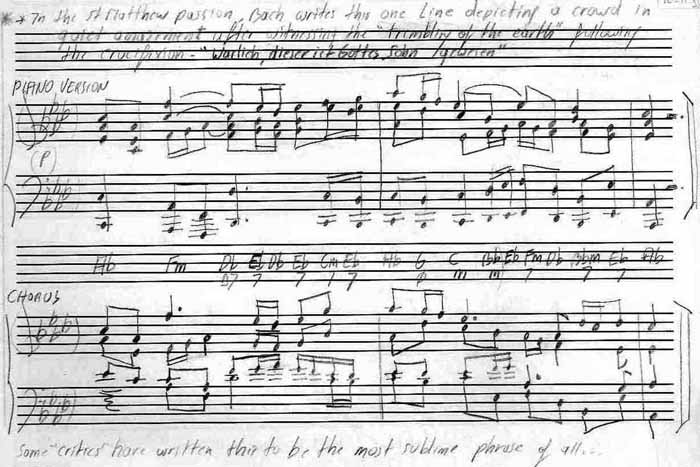 ** In the St Matthew passion, Bach writes this one line depicting a crowd in
quiet amazement after witnessing the "trembling of the earth" following
the crucifixion - "Warlich, dieser ist Gottes Sohn gewesen"
PIANO VERSION
(P)
Ab Fm Db Eb Db Eb Cm Eb Ab G C Bbm Eb Fm Db Bbm Eb Ab
CHORUS
Some "critics" have written this to be the most sublime phrase of all...